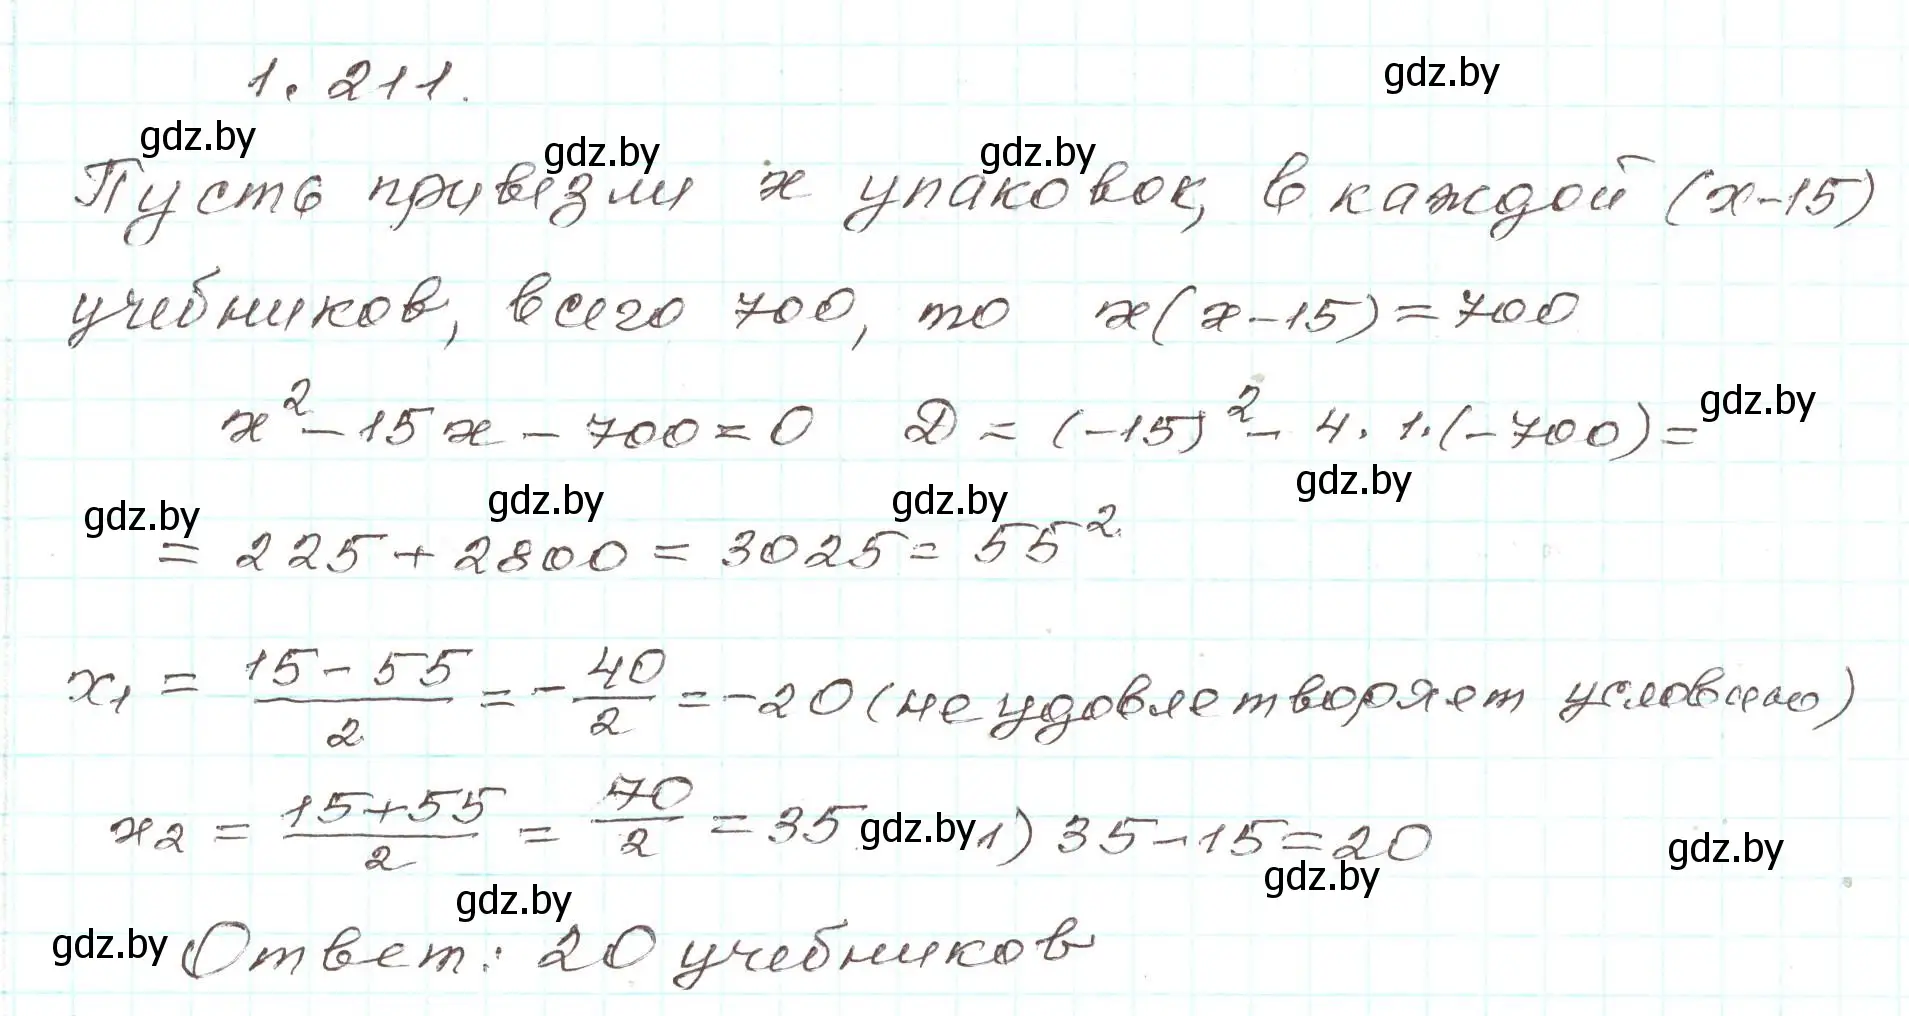 1.211.
gdz.by
gdz.by gdz.by gdz.by
Пусть привезли x упаковок, в каждой (x-15)
учебников, всего 700, то x(x-15)=700
x²-15x-700=0 D=(-15)²-4·1·(-700)=
gdz.by
gdz.by gdz.by gdz.by gdz.by
=225+2800=3025=55²
x₁ = (15-55)/2 = -40/2 = -20 (не удовлетворяет условию)
x₂ = (15+55)/2 = 70/2 = 35 gdz.by 1) 35-15=20
gdz.by
gdz.by gdz.by
gdz.by Ответ: 20 учебников